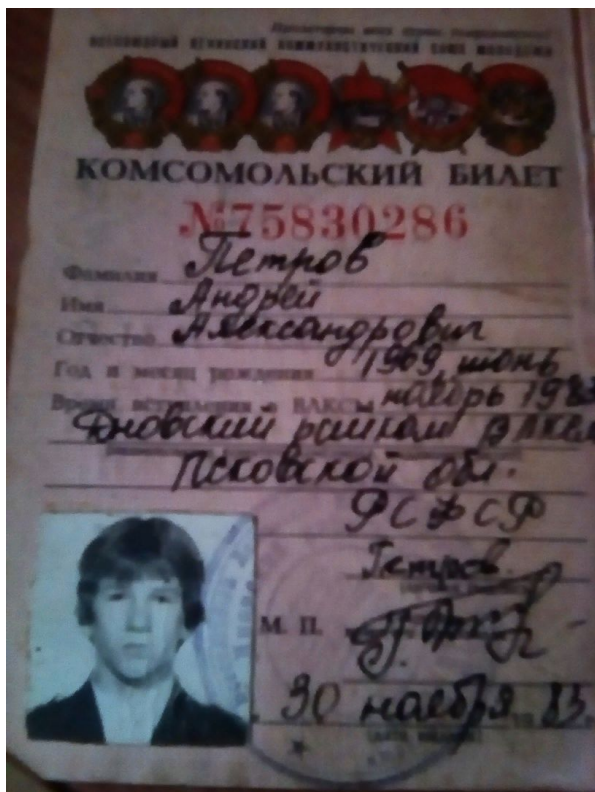 Пролетарии всех стран, соединяйтесь!
ВСЕСОЮЗНЫЙ ЛЕНИНСКИЙ КОММУНИСТИЧЕСКИЙ СОЮЗ МОЛОДЕЖИ
КОМСОМОЛЬСКИЙ БИЛЕТ
№75830286
Фамилия Петров
Имя Андрей
Отчество Александрович
Год и месяц рождения 1969, июнь
Время вступления в ВЛКСМ ноябрь 1983
Дновский райком ВЛКСМ
Псковской обл.
РСФСР
Петров.
М. П.
30 ноября 83